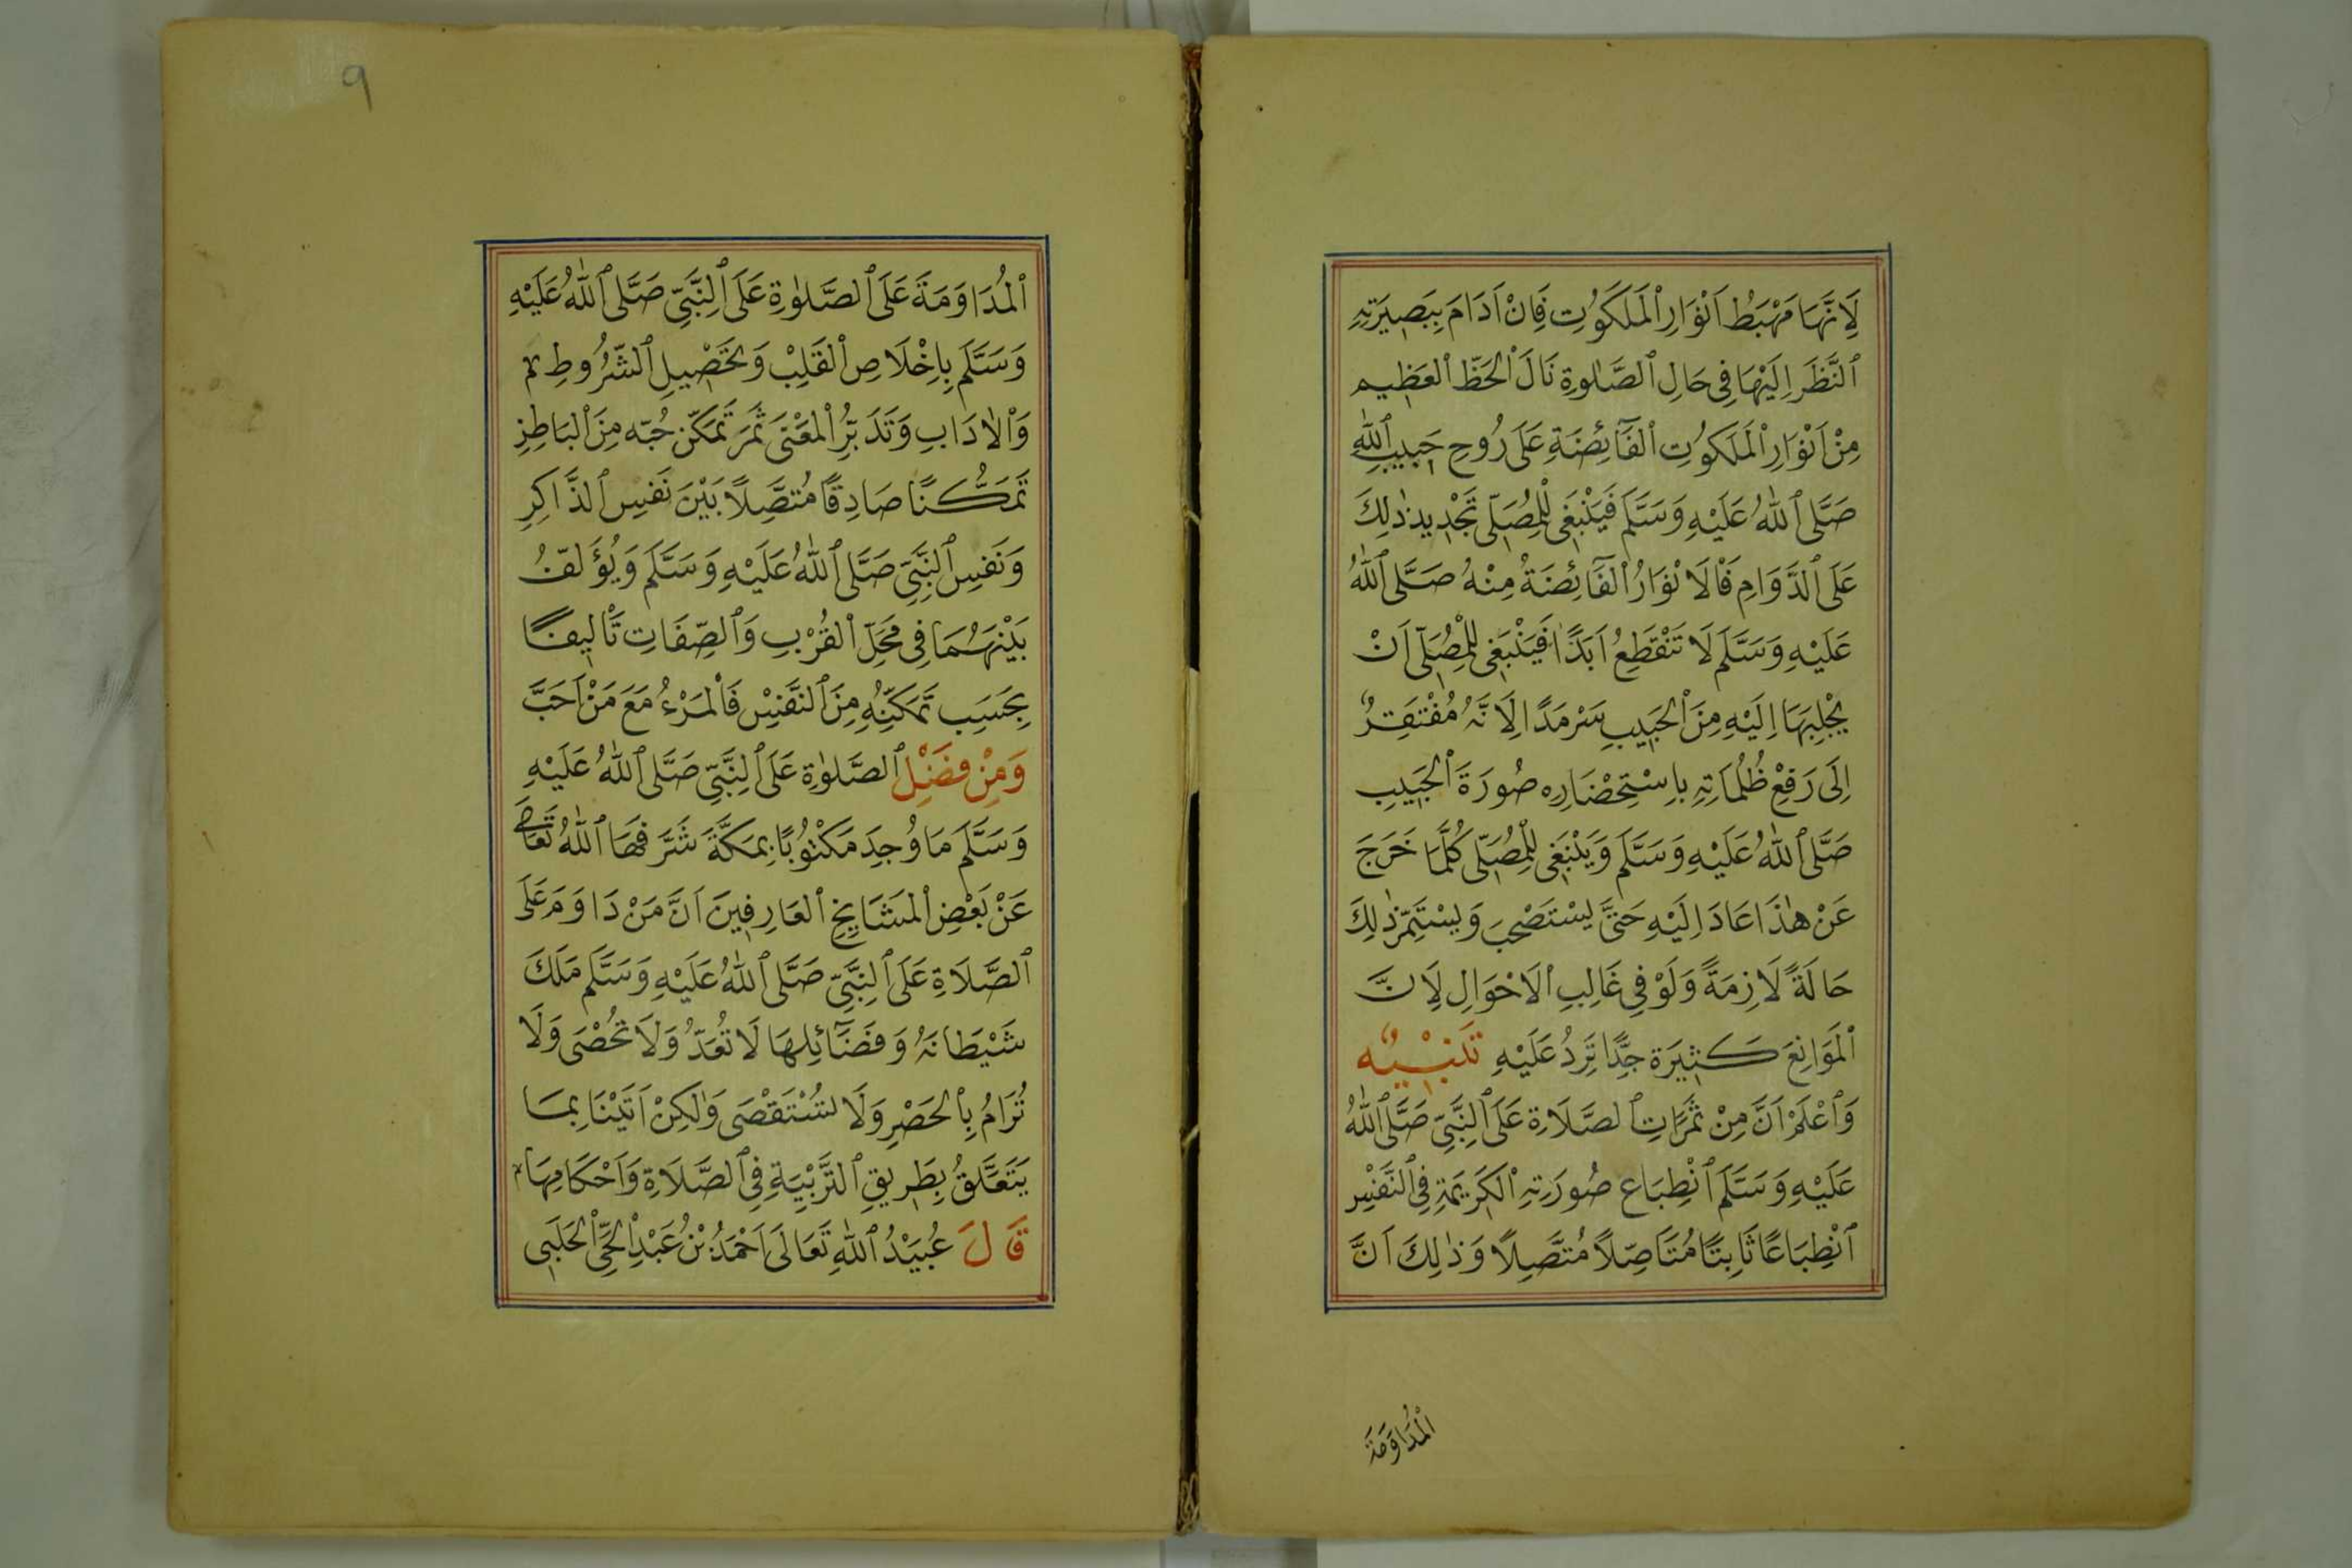 لِاَنَّهَا مَهْبَطُ اَنْوَارِ الْمَلَكُوتِ فَاِنْ اَدَامَ بِبَصِيرَتِهِ
ٱلنَّظَرَ اِلَيْهَا فِى حَالِ ٱلصَّلٰوةِ نَالَ الْحَظَّ الْعَظِيم
مِنْ اَنْوَارِ الْمَلَكُوتِ الْفَآئِضَةِ عَلَى رُوحِ حَبِيبِ ٱللّٰهِ
صَلَّى ٱللّٰهُ عَلَيْهِ وَسَلَّمَ فَيَنْبَغِى لِلْمُصَلِّى تَجْدِيدُ ذٰلِكَ
عَلَى ٱلدَّوَامِ فَالْاَنْوَارُ الْفَآئِضَةُ مِنْهُ صَلَّى ٱللّٰهُ
عَلَيْهِ وَسَلَّمَ لَا تَنْقَطِعُ اَبَدًا فَيَنْبَغِى لِلْمُصَلِّى اَنْ
يَجْلِبَهَا اِلَيْهِ مِنَ الْحَبِيبِ سَرْمَدًا لِاَنَّهُ مُفْتَقِرٌ
اِلَى رَفْعِ ظُلُمَاتِهِ بِاسْتِحْضَارِه صُورَةَ الْحَبِيبِ
صَلَّى ٱللّٰهُ عَلَيْهِ وَسَلَّمَ وَيَنْبَغِى لِلْمُصَلِّى كُلَّمَا خَرَجَ
عَنْ هٰذَا عَادَ اِلَيْهِ حَتَّى يَسْتَصْحِبَ وَيَسْتَمِرَّ ذٰلِكَ
حَالَةً لَازِمَةً وَلَوْ فِى غَالِبِ الْاَحْوَالِ لِاَنَّ
الْمَوَانِعَ كَثِيرَة جِدًّا تَرِدُ عَلَيْهِ تَنْبِيْهٌ
وَٱعْلَمْ اَنَّ مِنْ ثَمَرَاتِ ٱلصَّلَاةِ عَلَى ٱلنَّبِىِّ صَلَّى ٱللّٰهُ
عَلَيْهِ وَسَلَّمَ ٱنْطِبَاع صُورَتِهِ الْكَرِيمَةِ فِى ٱلنَّفْسِ
ٱنْطِبَاعًا ثَابِتًا مُتَاَصِّلًا مُتَّصِلًا وَذٰلِكَ اَنَّ
الْمُدَاوَمَةَ
٩
الْمُدَاوَمَةَ عَلَى ٱلصَّلٰوةِ عَلَى ٱلنَّبِىِّ صَلَّى ٱللّٰهُ عَلَيْهِ
وَسَلَّمَ بِاِخْلَاصِ الْقَلْبِ وَتَحْصِيلِ ٱلشُّرُوطِ
وَالْاٰدَابِ وَتَدَبُّرِ الْمَعْنَى ثَمَرَ تَمَكُّن حُبِّه مِنَ الْبَاطِنِ
تَمَكُّنًا صَادِقًا مُتَّصِلًا بَيْنَ نَفْسِ ٱلذَّاكِرِ
وَنَفْسِ ٱلنَّبِىِّ صَلَّى ٱللّٰهُ عَلَيْهِ وَسَلَّمَ وَيُؤَلِّفُ
بَيْنَهُمَا فِى مَحَلِّ الْقُرْبِ وَٱلصِّفَاتِ تَاْلِيفًا
بِحَسَبِ تَمَكُّنِهِ مِنَ ٱلنَّفْسِ فَالْمَرْءُ مَعَ مَنْ اَحَبَّ
وَمِنْ فَضْلِ ٱلصَّلٰوةِ عَلَى ٱلنَّبِىِّ صَلَّى ٱللّٰهُ عَلَيْهِ
وَسَلَّمَ مَا وُجِدَ مَكْتُوبًا بِمَكَّةَ شَرَّفَهَا ٱللّٰهُ تَعَالَى
عَنْ بَعْضِ الْمَشَايِخِ الْعَارِفِينَ اَنَّ مَنْ دَاوَمَ عَلَى
ٱلصَّلَاةِ عَلَى ٱلنَّبِىِّ صَلَّى ٱللّٰهُ عَلَيْهِ وَسَلَّمَ مَلَكَ
شَيْطَانَهُ وَفَضَآئِلهَا لَا تُعَدُّ وَلَا تُحْصَى وَلَا
تُرَامُ بِالْحَصْرِ وَلَا تُسْتَقْصَى وَلٰكِنْ اَتَيْنَا بِمَا
يَتَعَلَّقُ بِطَرِيقِ ٱلتَّرْبِيَةِ فِى ٱلصَّلَاةِ وَاَحْكَامِهَا
قَالَ عُبَيْدُ ٱللّٰهِ تَعَالَى اَحْمَدُ بْنُ عَبْدِ الْحَىِّ الْحَلَبِى